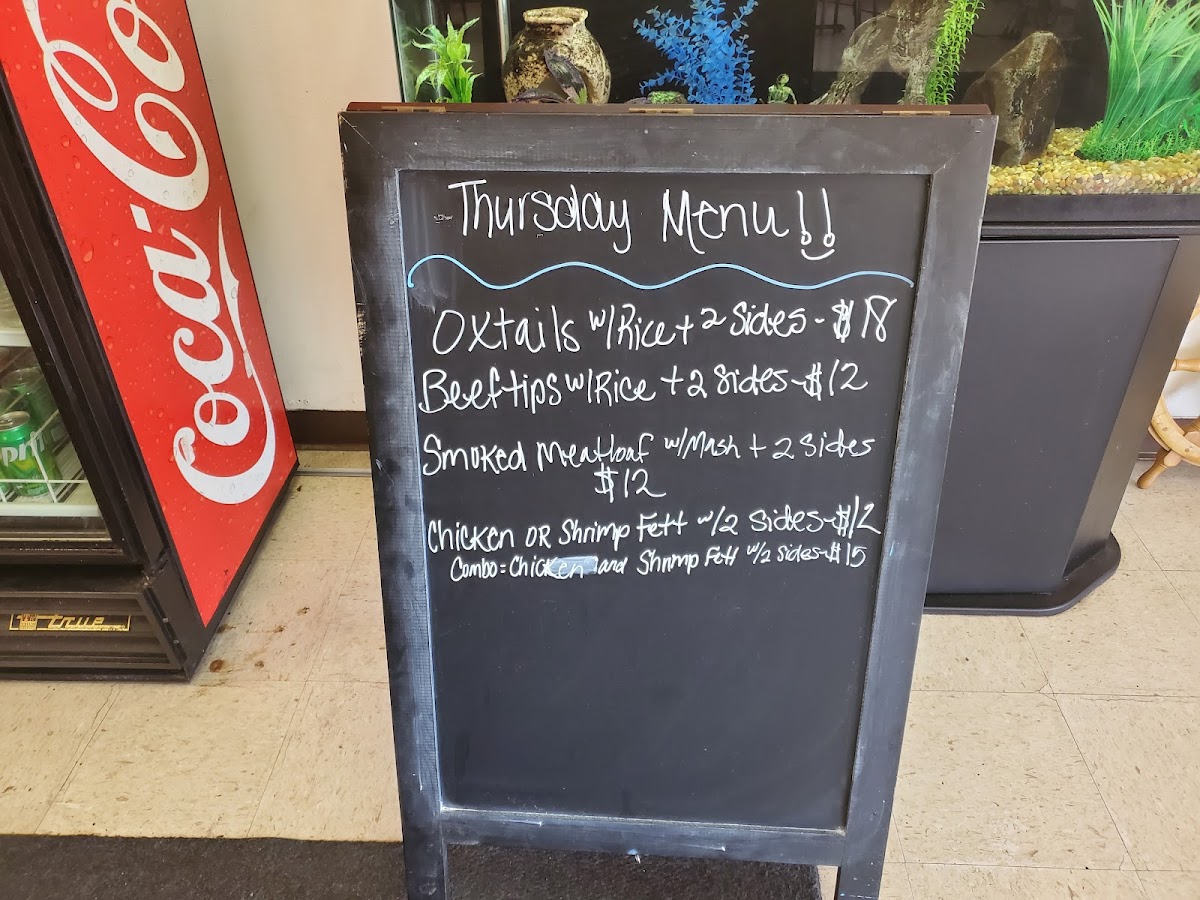 Coca-Cola
Thursday Menu!!
Oxtails w/Rice + 2 Sides - $18
Beeftips w/Rice + 2 Sides - $12
Smoked Meatloaf w/Mash + 2 Sides
$12
Chicken OR Shrimp Fett w/2 Sides - $12
Combo = Chicken and Shrimp Fett w/2 Sides - $15
true